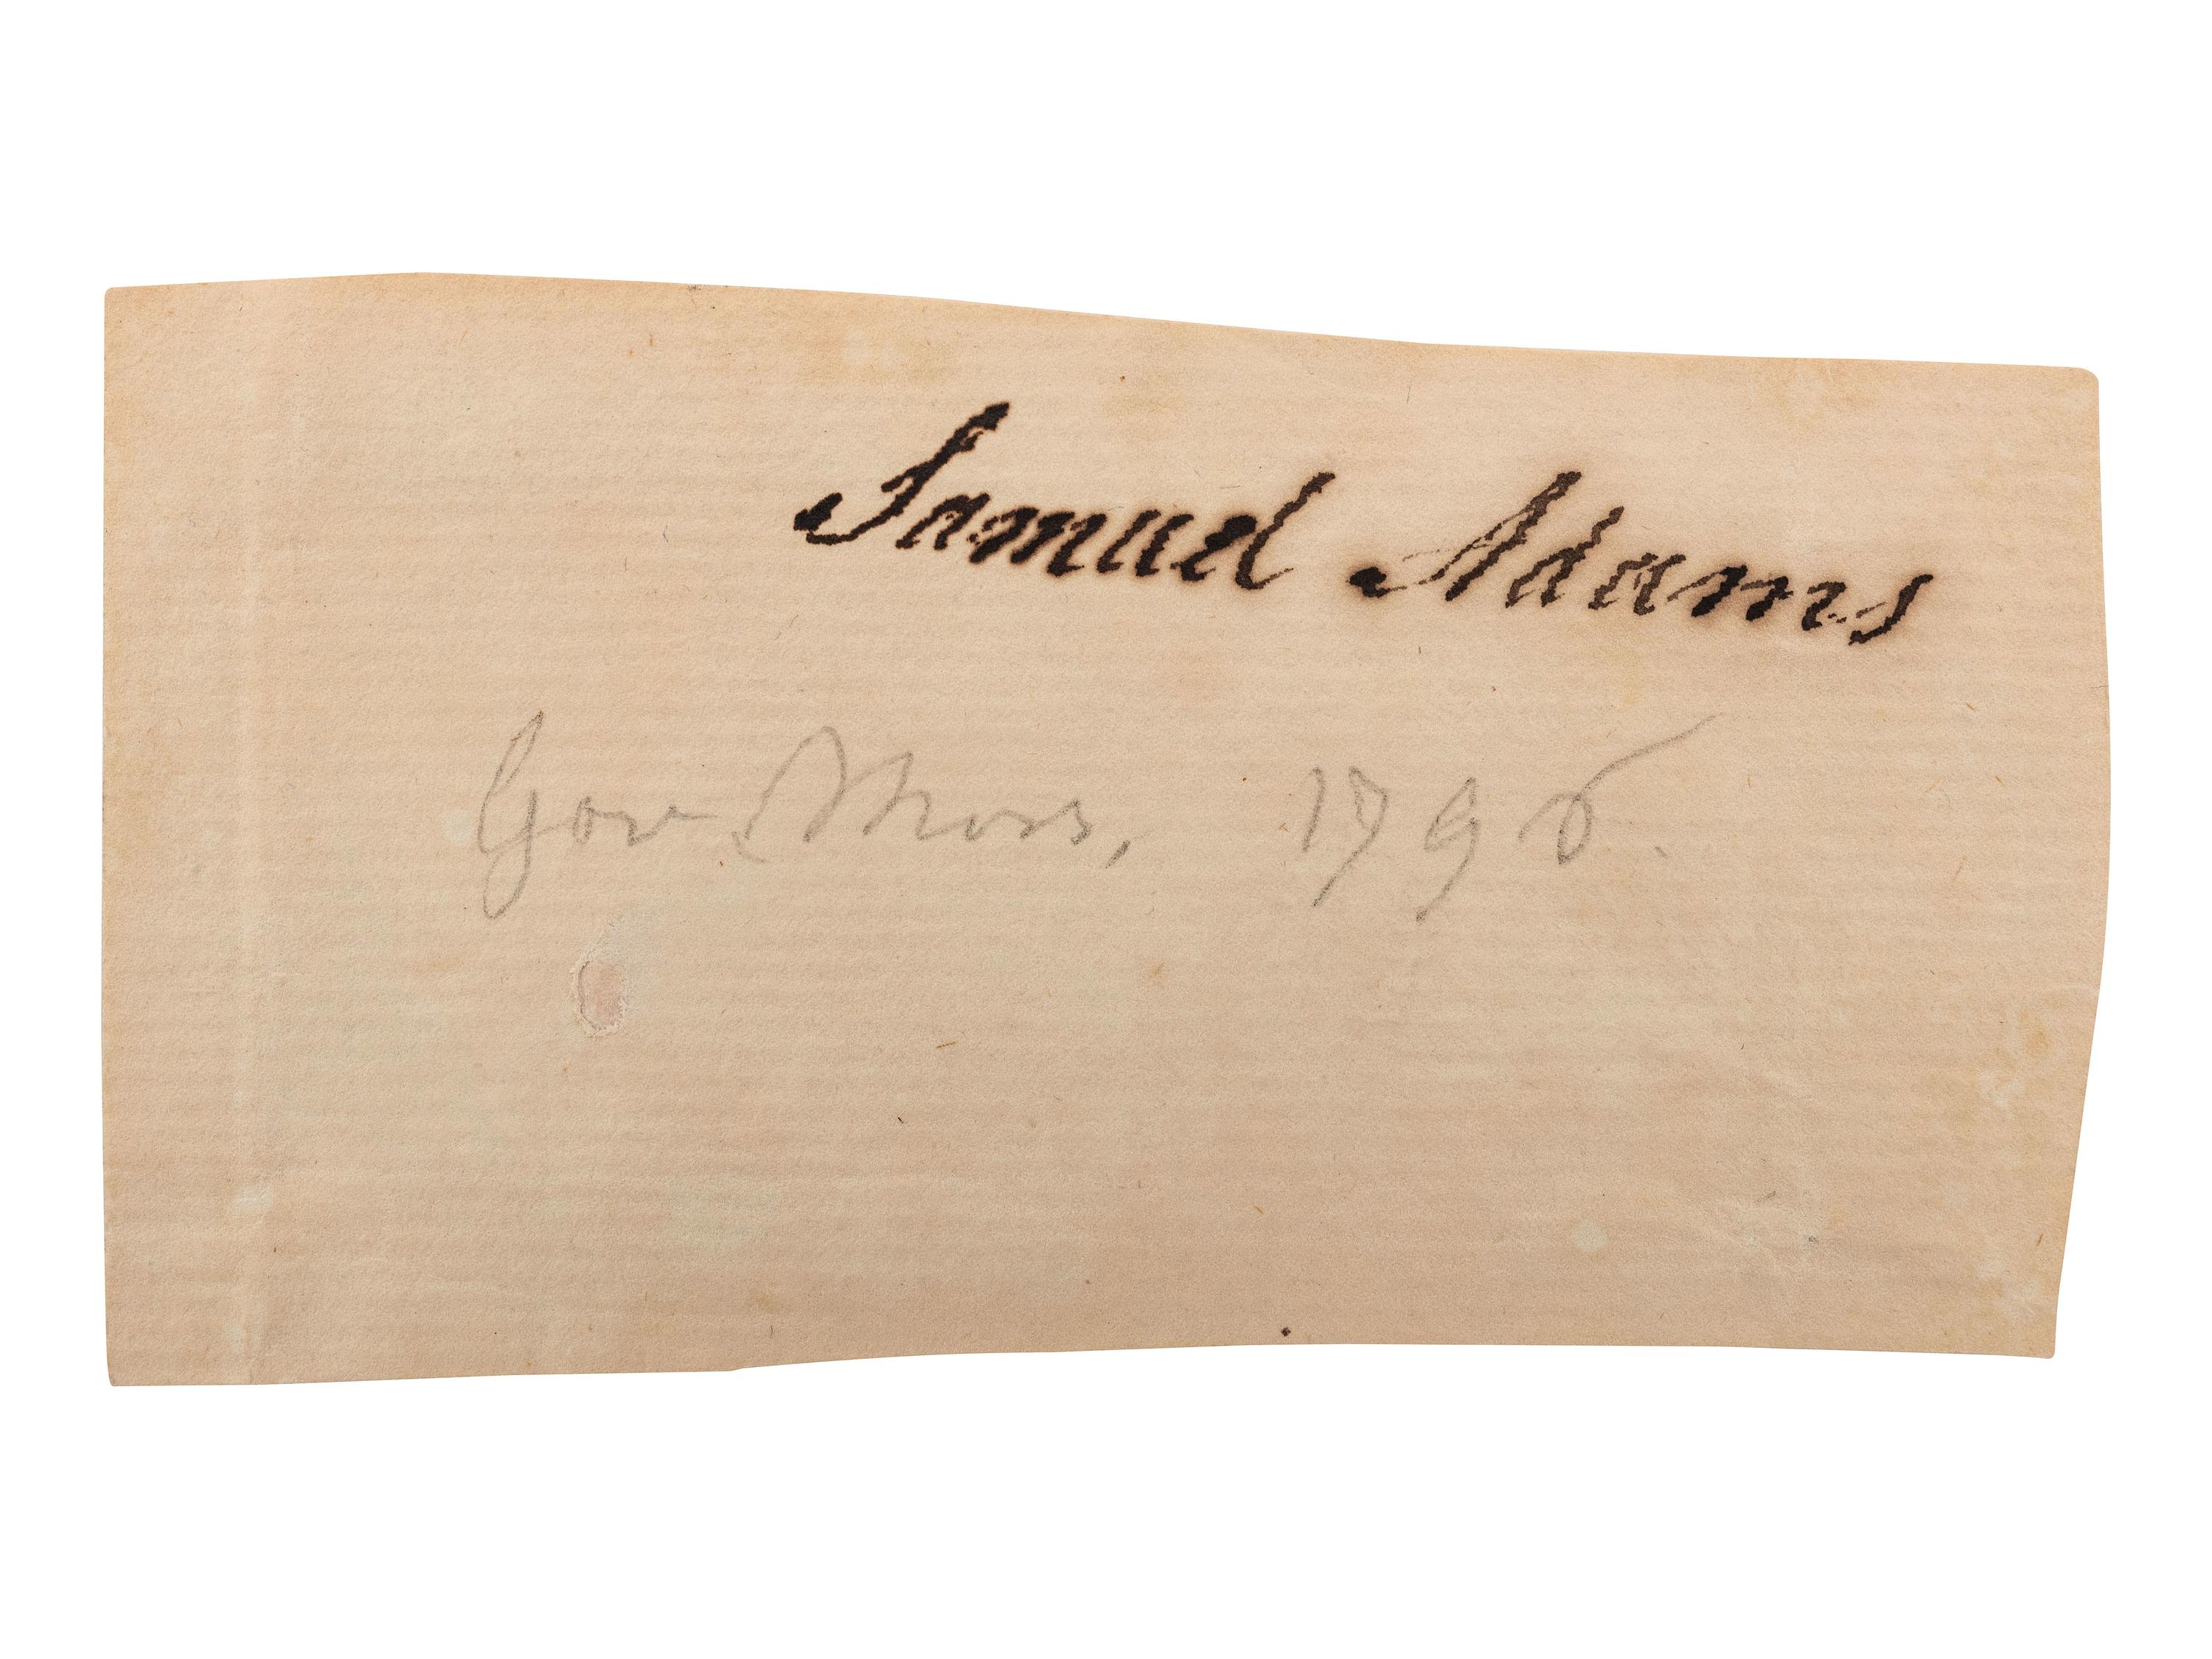 Samuel Adams
Gov Mass, 1796.